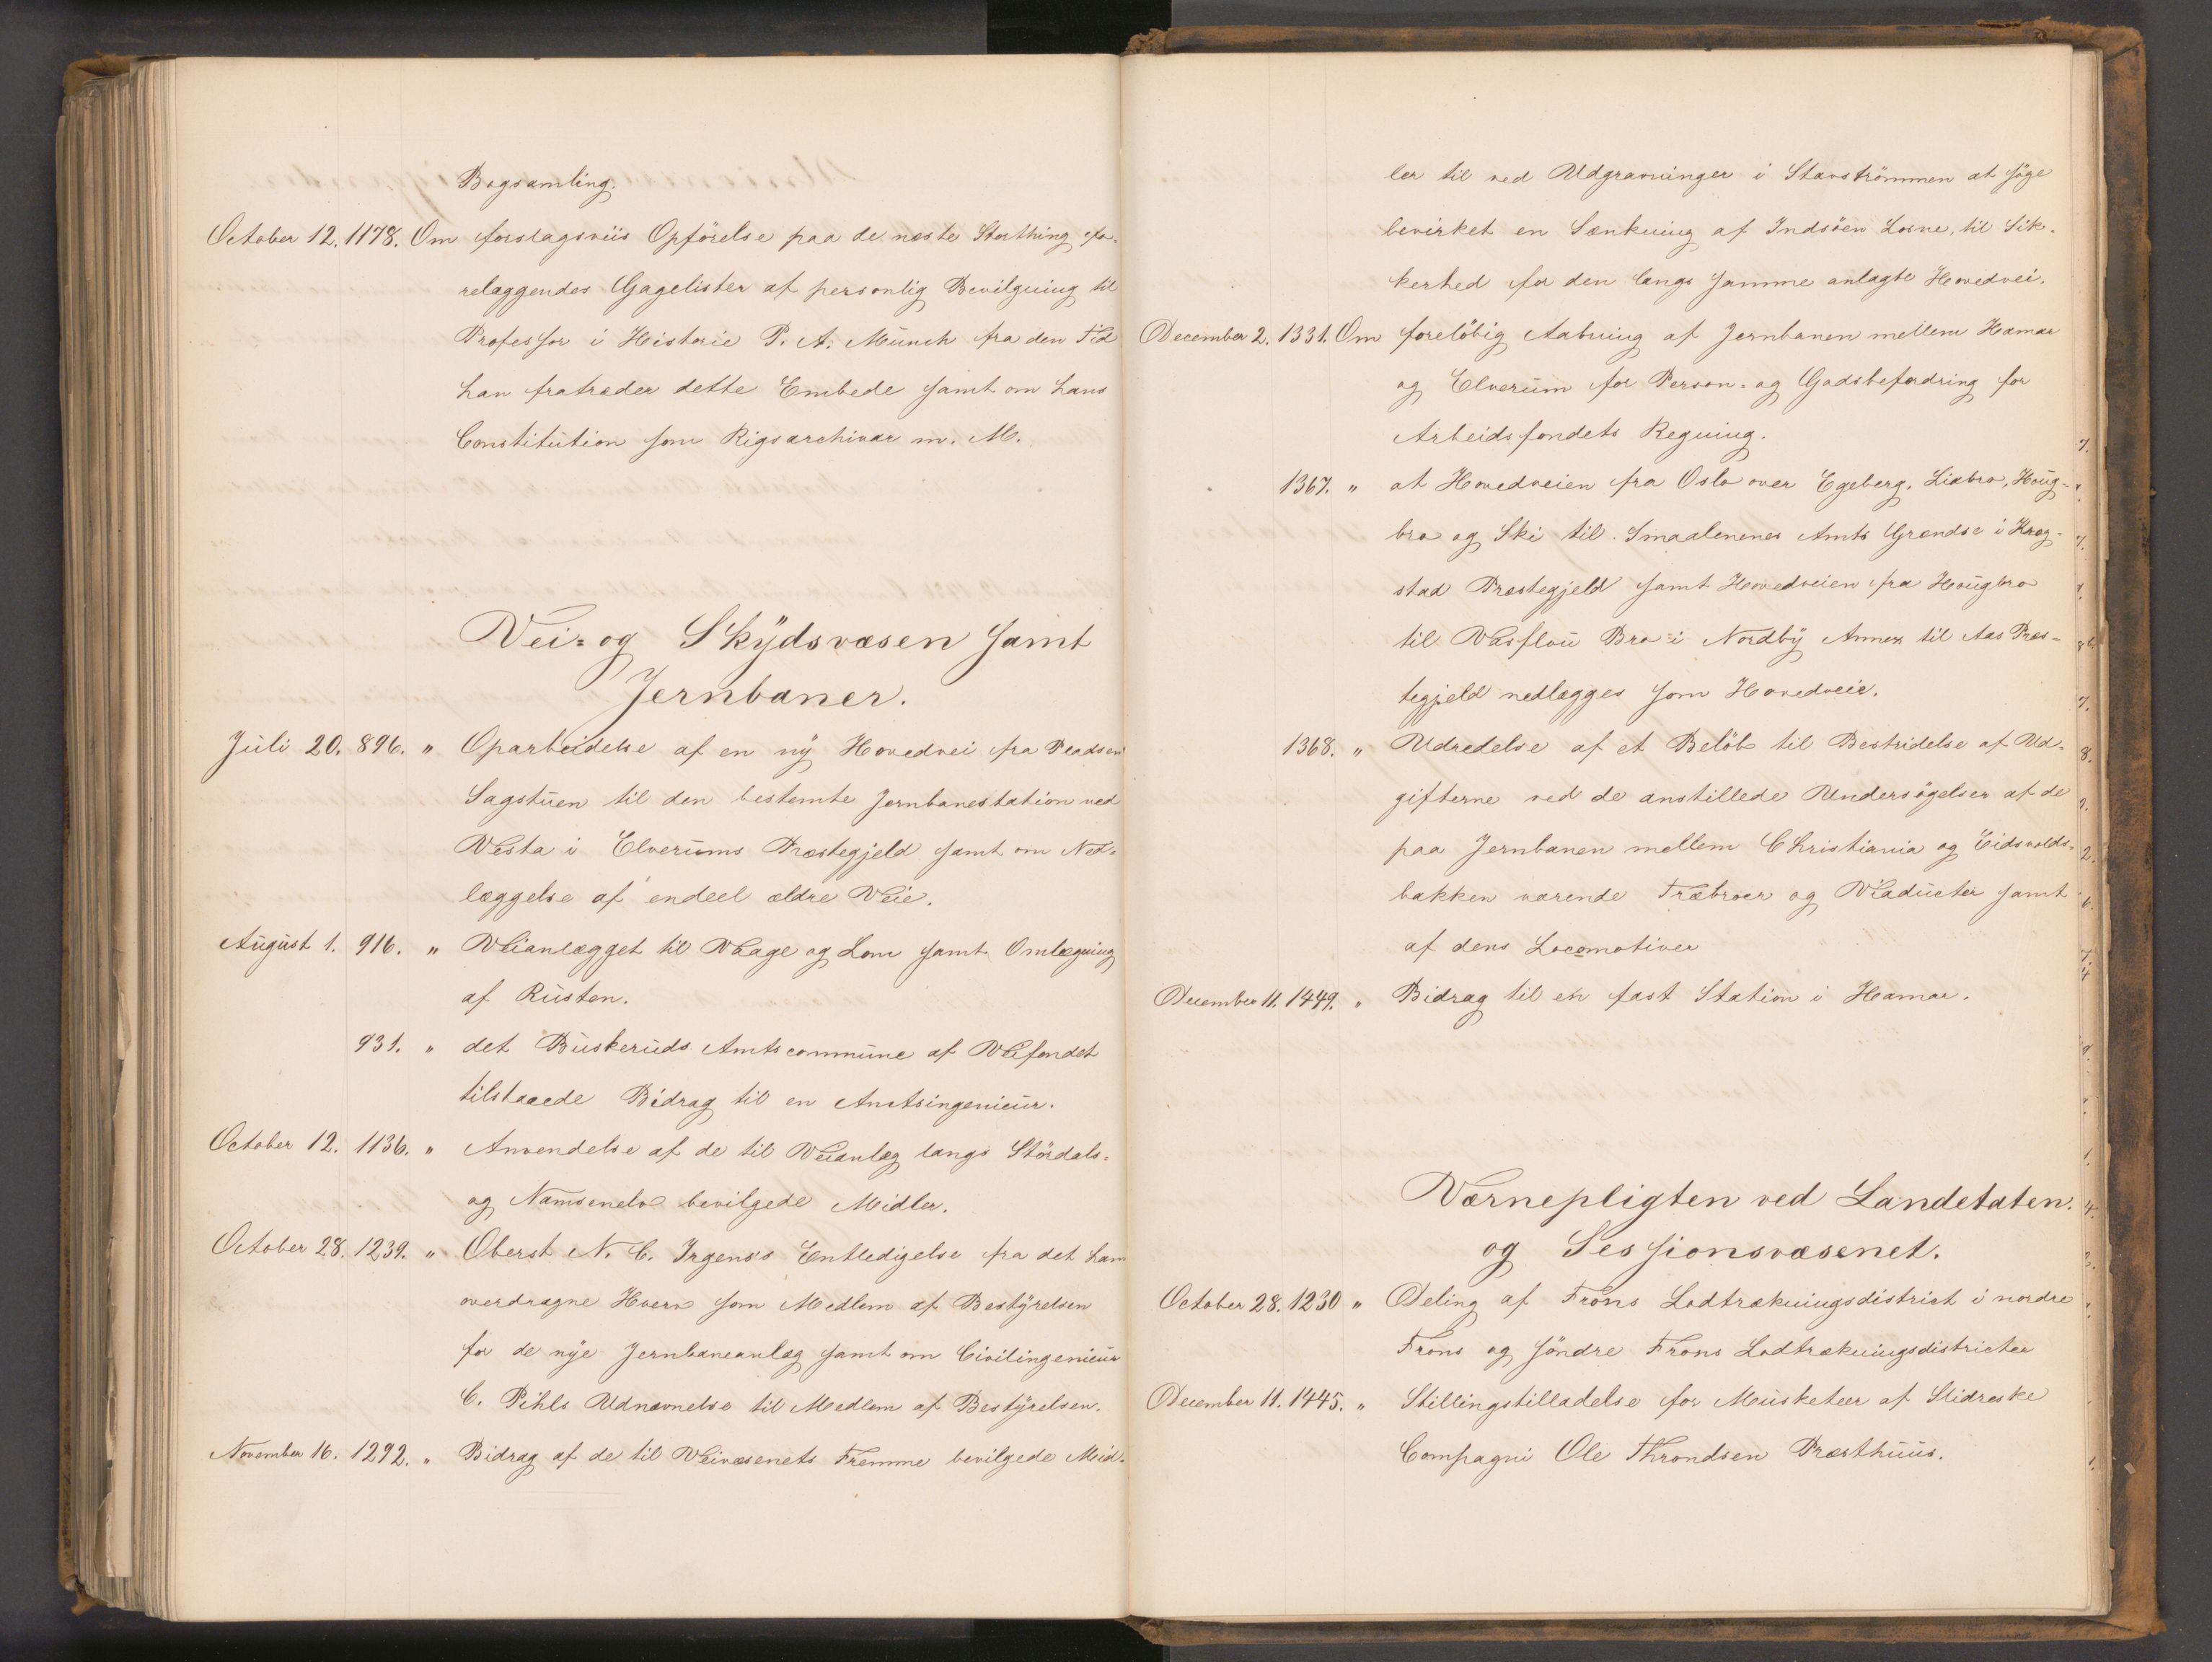 Bogsamling.
October 12. 1178. Om forslagsviis Opförelse paa de næste Storthing fo-
relæggendes Gagelister af personlig Bevilgning til
Professor i Historie P. A. Münch fra den Tid
han fratræder dette Embede samt om hans
Constitution som Rigsarchivar m. M.
Vei- og Skydsvæsen samt
Jernbaner.
Juli 20. 896. " Oparbeidelse af en ny Hovedvei fra Pladsen
Sagstuen til den bestemte Jernbanestation ved
Vesta i Elverums Præstegjeld samt om Ned-
læggelse af endeel ældre Veie.
August 1. 916. " Veianlægget til Vaage og Lom samt Omlægning
af Rusten.
931. " det Buskeruds Amtscommune af Veifondet
tilstaaede Bidrag til en Amtsingenieur.
October 12. 1136. " Anvendelse af de til Veianlæg langs Stördals-
og Namsenelv bevilgede Midler.
October 28. 1239. " Oberst N. C. Irgens's Entledigelse fra det ham
overdragne Hverv som Medlem af Bestyrelsen
for de nye Jernbaneanlæg samt om Civilingenieur
C. Pihls Udnævnelse til Medlem af Bestyrelsen.
November 16. 1292. " Bidrag af de til Veivæsenets Fremme bevilgede Mid-
ler til ved Udgravninger i Stavströmmen at söge
bevirket en Sænkning af Indsöen Losne, til Sik-
kerhed for den langs samme anlagte Hovedvei.
December 2. 1331. Om foreløbig Aabning af Jernbanen mellem Hamar
og Elverum for Person- og Godsbefordring for
Arbeidsfondets Regning.
1367. " at Hovedveien fra Oslo over Egeberg, Liabro, Houg-
bro og Ski til Smaalenenes Amts Grændse i Krog-
stad Præstegjeld samt Hovedveien fra Hougbro
til Vasflou Bro i Nordby Annex til Aas Præs-
tegjeld nedlægges som Hovedveie.
1368. " Udredelse af et Belöb til Bestridelse af Ud-
gifterne ved de anstillede Undersögelser af de
paa Jernbanen mellem Christiania og Eidsvolds-
bakken værende Træbroer og Viaducter samt
af dens Locomotiver
December 11. 1449. " Bidrag til en fast Station i Hamar.
Værnepligten ved Landetaten.
og Sessionsvæsenet.
October 28. 1230 " Deling af Frons Lodtrækningsdistrict i nordre
Frons og söndre Frons Lodtrækningsdistricter
December 11. 1445. " Stillingstilladelse for Musketeer af Slidreske
Compagni Ole Throndsen Præsthuus.